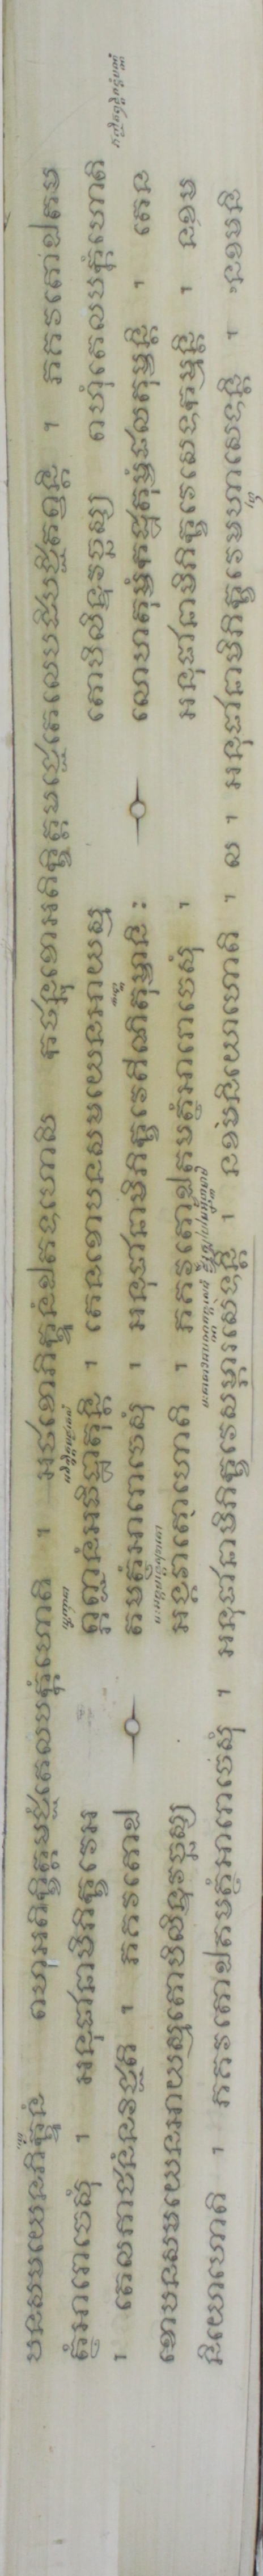 បនសមយេនភិក្ខូនំ ពហុអតិក្ខិត្តមជ្ជំតេលំបក្កំហោតិ ។ អថខោភិក្ខូនំឯតទហោសិ កថន្នុខោអតិក្ខិត្តមជ្ជេតេលេបដិបជ្ជិតព្វន្តិ ។ ភគវតោឯតម
ត្ថំអារោចេសុំ ។ អនុជានាមិភិក្ខវេអ ព្ភញ្ជនំអធិដ្ឋាតុន្តិ ។ តេនខោបនសមយេនអាយស្ម តោបិលិន្ទវច្ឆស្ស ពហុំតេលំបក្កំហោតិ
។ តេលភាជនំនវិជ្ជតិ ។ ភគវតោឯ តមត្ថំអារោចេសុំ ។ អនុជានាមិភិក្ខវេតីណិតុម្ពានិ ៈ លោហតុម្ពំកដ្ឋតុម្ពំផលតុម្ពន្តិ ។ តេន
ខោបនសមយេនអាយស្មតោបិលិន្ទវច្ឆស្ស អង្គវាតោហោតិ ។ ភគវតោឯតមត្ថំអារោចេសុំ ។ អនុជានាមិភិក្ខវេសេទកម្មន្តិ ។ នខម
និយោហោតិ ។ ភគវតោឯតមត្ថំអារោចេសុំ ។ អនុជានាមិភិក្ខវេសម្ភារសេទន្តិ ។ នខមនិយោហោតិ ។ ល ។ អនុជានាមិភិក្ខវេមហាសេទន្តិ ។ នខមនិ